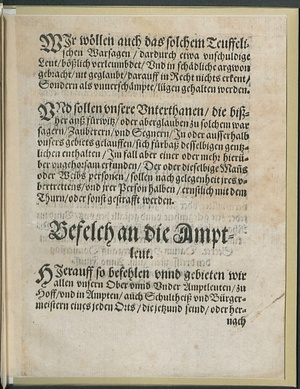 WJr wöllen auch das solchem Teuffeli-
schen Warsagen / dardurch etwa vnschuldige
Leut / bößlich verleumbdet / Vnd in schädliche argwon
gebracht / nit geglaubt / darauff in Recht nichts erkent /
Sondern als vnuerschämpte / lügen gehalten werden.
VNd sollen vnsere Vnterthanen / die biß-
her auß fürwitz / oder aberglauben zu solchen war
sagern / Zaubrern / vnd Segnern / Jn oder ausserhalb
vnsers gebiets gelauffen / sich fürbaß desselbigen gentz-
lichen enthalten / Jm fall aber einer oder mehr hierü-
ber vngehorsam erfunden / Der oder dieselbige Mañs
oder Weibs personen / sollen nach gelegenheit jres v-
bertrettens / vnd jrer Person halben / ernstlich mit dem
Thurn / oder sonst gestrafft werden.
Befelch an die Ampt-
leut.
HJerauff so befehlen vnnd gebieten wir
allen vnsern Ober vnnd Vnder Amptleuten / zu
Hoff / vnd in Ampten / auch Schultheiß vnd Bürger-
meistern eines jeden Orts / die jetzund seind / oder her-
nach